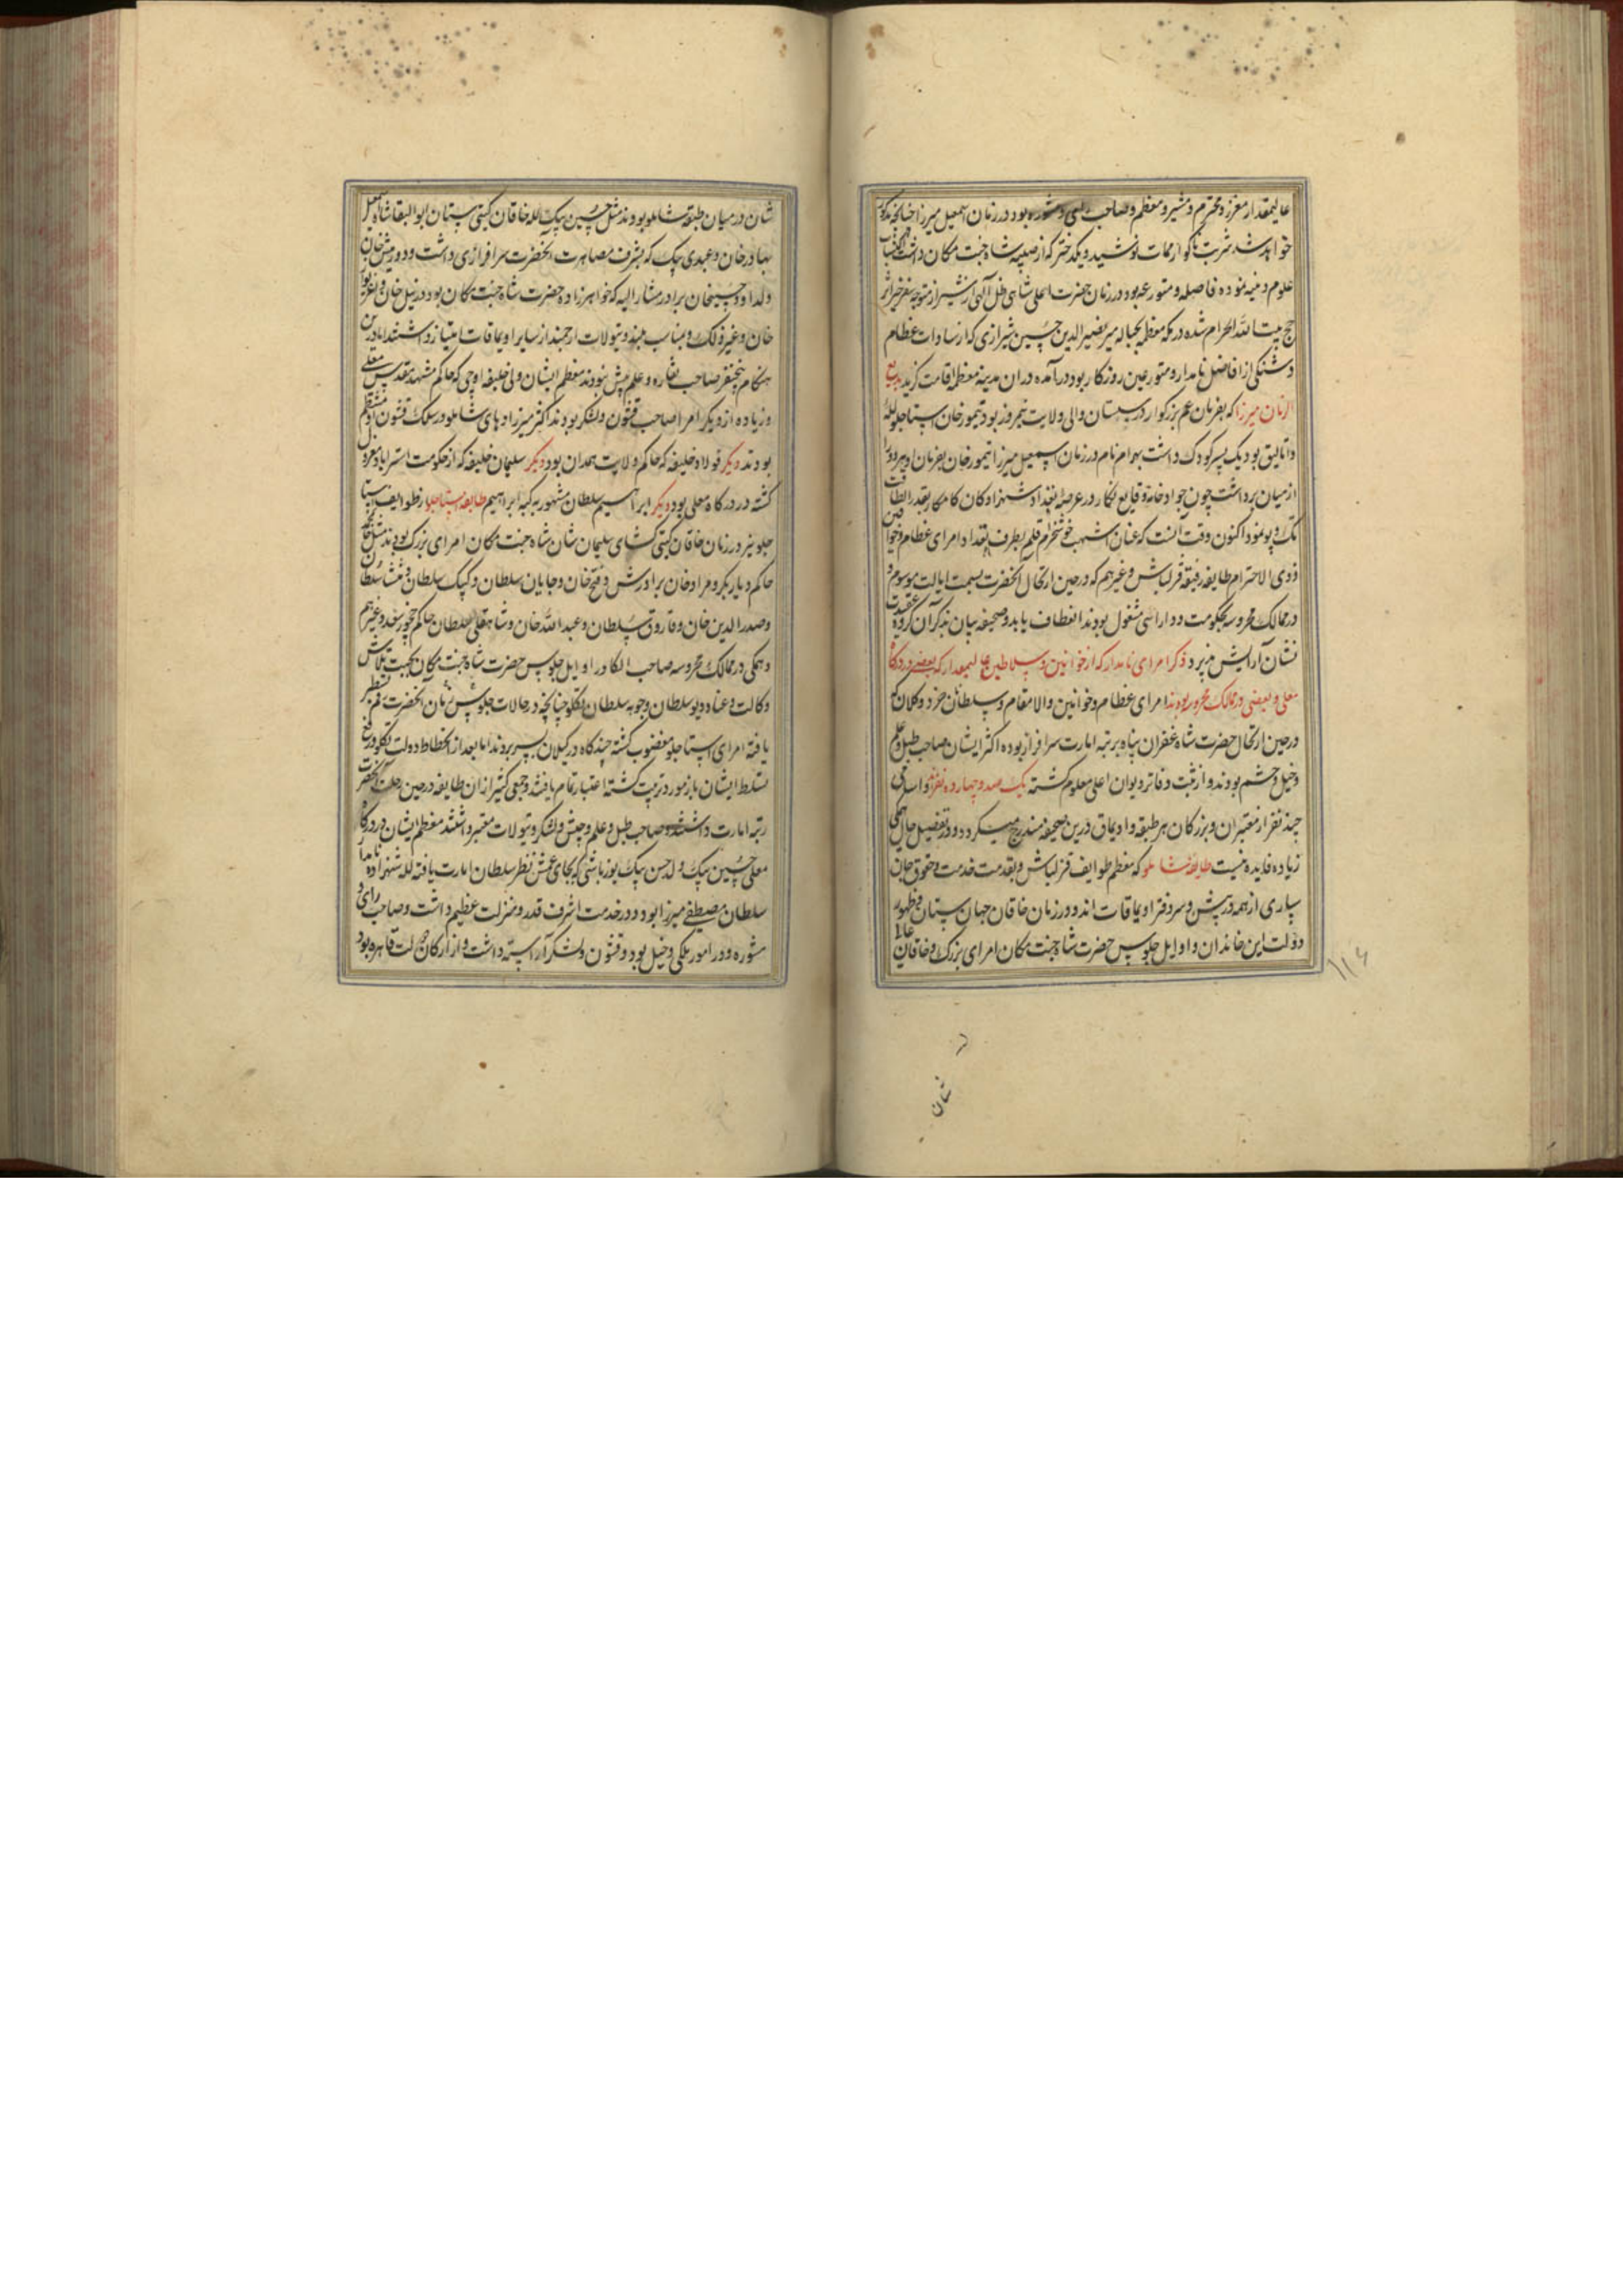 عالیمقدار معزز و محترم و مشیر و معظم و صاحب رای و مشوره بود در زمان اسمعیل میرزا چنانچه مذکور
خواهد شد شربت ناگوار ممات نوشید و یکدختر که از صبیه شاه جنت مکان داشت اکتساب
علوم دینیه نموده فاضله و متورعه بود در زمان حضرت اعلی شاهی ظل آلهی از شیراز متوجه سفر خیر اثر
حج بیت الله الحرام شده در مکه معظمه بحباله میر نصیر الدین حسین شیرازی که از سادات عظام
دشتکی از افاضل نامدار و متورعین روزکار بود درآمده در ان مدینه معظمه اقامت کزید بدیع
الزمان میرزا که بفرمان عم بزرکوار در سیستان والی ولایت نیمروز بود تیمور خان استاجلو لله
و اتالیق بود یک پسر کودک داشت بهرام نام در زمان اسمعیل میرزا تیمور خان بفرمان او هر دو را
از میان برداشت چون جواد خامه وقایع نکار در عرصه تعداد شهزادکان کامکار بقدر الطاقت
تک و پو نمود اکنون وقت انست که عنان اشهب خوشخرام قلم بطرف تعداد امرای عظام و خوانین
ذوی الاحترام طایفه رفیعه قزلباش و غیرهم که در حین ارتحال آنحضرت بسمت ایالت موسوم و
در ممالک محروسه بحکومت و دارائی مشغول بودند انعطاف یابد و صحیفه بیان بذکر آن کروه عقیدت
نشان آرایش پذیرد ذکر امرای نامدار که از خوانین و سلاطین عالیمقدار که بعضی در درکاه
معلی و بعضی در ممالک محروسه بودند امرای عظام و خوانین والامقام و سلطانان خرد و کلان که
در حین ارتحال حضرت شاه غفران پناه برتبه امارت سرافراز بوده اکثر ایشان صاحب طبل و علم
و خیل و حشم بودند و از ثبت دفاتر دیوان اعلی معلوم کشته یک صد و چهارده نفرند و اسامی
چند نفر از معتبران و بزرکان هر طبقه و اویماق درین صحیفه مندرج میکردد و در تفصیل حال همکی
زیاده فایده نیست طایفه شاملو که معظم طوایف قزلباش و بقدمت خدمت و حقوق جان
سپاری از همه در پیش و سر دفتر اویماقات اند و در زمان خاقان جهان ستان و ظهور
دولت این خاندان و اوایل جلوس حضرت شاه جنت مکان امرای بزرک و خاقان عالی
شان
۱۱۶
شان در میان طبقه شاملو بودند مثل حسین بیک لله خاقان کیتی ستان ابوالبقا شاه اسمعیل
بهادر خان و عبدی بیک که بشرف مصاهرت آنحضرت سرافرازی داشت و دورمیش خان
ولد او و حسینخان برادر مشار الیه که خواهرزاده حضرت شاه جنت مکان بود و زینل خان و اغزیوار
خان و غیر ذلک و بمناصب بلند و تیولات ارجمند از سایر اویماقات امتیاز داشتند اما درین
هنکام پنجنفر صاحب نقاره و علم پیش نبودند معظم ایشان ولی خلیفه اوجی که حاکم مشهد مقدس معلی
و زیاده از دیکر امرا صاحب قشون و لشکر بودند اکثر میرزادهای شاملو در سلک قشون او منتظم
بودند دیکر فولاد خلیفه که حاکم ولایت همدان بود دیکر سلیمان خلیفه که از حکومت استراباد معزول
کشته در درکاه معلی بود دیکر ابراهیم سلطان مشهور به کپه ابراهیم طایفه استاجلو از طوایف استا
جلو نیز در زمان خاقان کیتی کشای سلیمان شان شاه جنت مکان امرای بزرک بودند مثل محمد خان
حاکم دیاربکر و مراد خان برادرش و فتح خان و جایان سلطان و کپک سلطان و منتشا سلطان
و صدر الدین خان و قاروق سلطان و عبد الله خان و شاهقلی سلطان حاکم چخور سعد و غیرهم
و همکی در ممالک محروسه صاحب الکا در اوایل جلوس حضرت شاه جنت مکان بجهت تلاش
وکالت و عناد دیو سلطان و چوهه سلطان تکلو چنانچه در حالات جلوس آن آنحضرت رقمزده
یافته امرای استاجلو مغضوب کشته چند کاه در کیلان بسر بردند اما بعد از انحطاط دولت تکلو و رفع
تسلط ایشان باز مورد تربیت کشته اعتبار تمام یافتند و جمعی کثیر از ان طایفه در حین رحلت آنحضرت
رتبه امارت داشتند و صاحب طبل و علم و جیش و لشکر و تیولات معتبر داشتند معظم ایشان در درکاه
معلی حسین بیک ولد حسن بیک یوزباشی که بجای عمش نظر سلطان امارت یافته لله شهزاده نامدار
سلطان مصطفی میرزا بود و در خدمت اشرف قدر و منزلت عظیم داشت و صاحب رای و
مشوره و در امور ملکی دخیل بود و قشون و لشکر آراسته داشت و از ارکان دولت قاهره بود